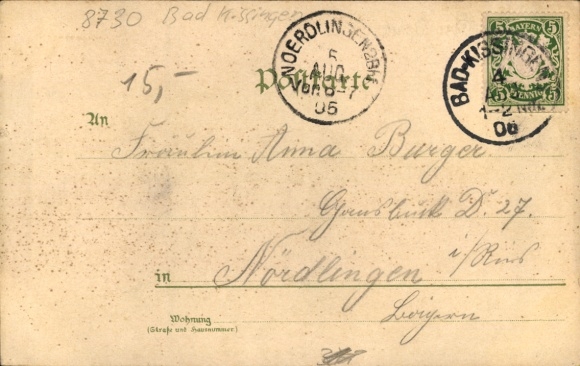 8730 Bad Kissingen
15,-
NOERDLINGEN 2 BHF
5
AUG
Vor. 6-7
05
Postkarte
BAYERN
5 5
5 5
PFENNIG
BAD-KISSINGEN
4
1-2 Nm.
06
An
Fräulein Anna Burger
D. 27.
in Nördlingen i/Ries
Bayern
Wohnung
(Straße und Hausnummer)